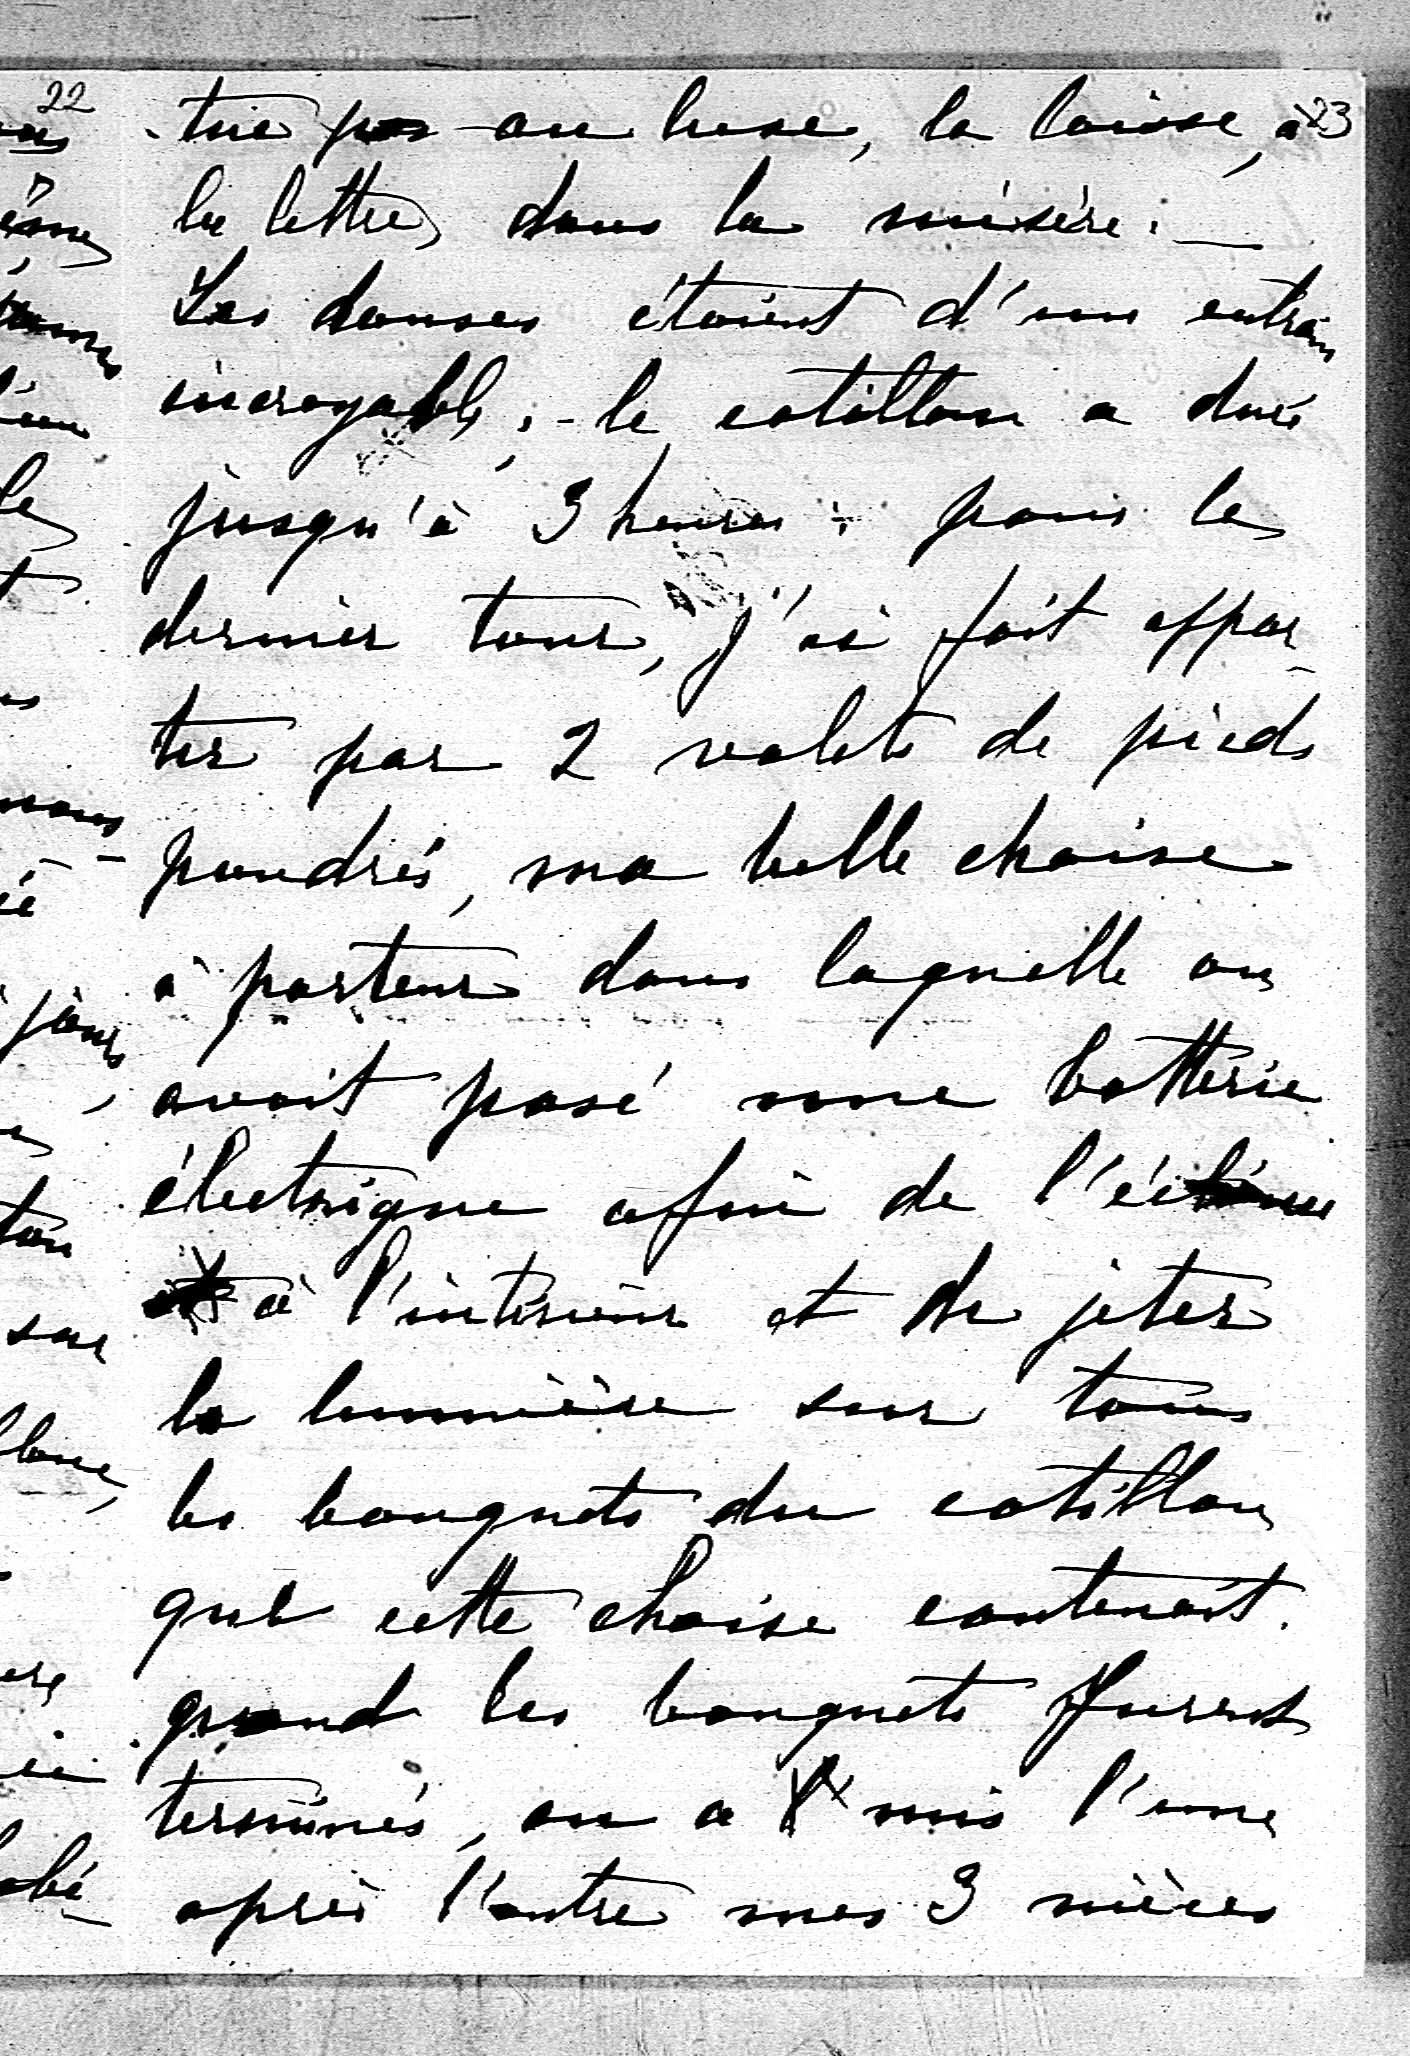 23
tue pas au luxe, la laisse, à
la lettre, dans la misère. —
Les danses étaient d'un entrain
incroyable; - le cotillon a duré
jusqu'à 3 heures : pour le
dernier tour, j'ai fait appor-
ter par 2 valets de pieds
poudrés, ma belle chaise
à porteur dans laquelle on
avait posé une batterie
électrique afin de l'éclairer
à l'intérieur et de jeter
la lumière sur tous
les bouquets du cotillon
que cette chaise contenait.
quand les bouquets furent
terminés, on a mis l'une
après l'autre mes 3 nièces
22